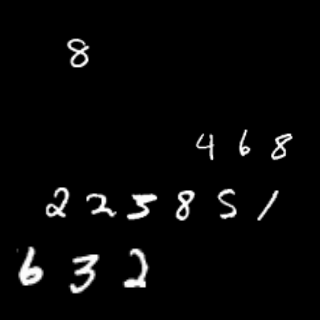 8
4 6 8
2 2 5 8 5 1
6 3 2